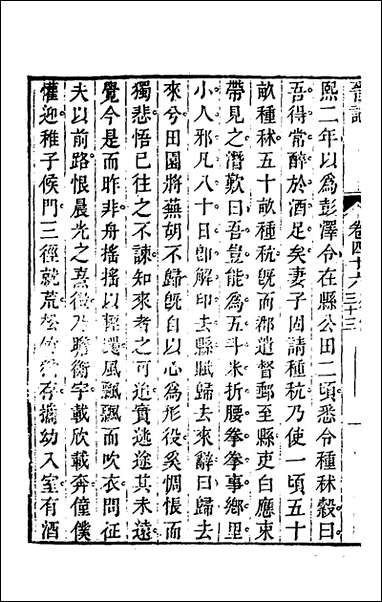 晉記
卷四十六
三十三
熙二年以為彭澤令在縣公田二頃悉令種秫穀曰
吾得常醉於酒足矣妻子固請種秔乃使一頃五十
畝種秫五十畝種秔既而郡遣督郵至縣吏白應束
帶見之潛歎曰吾豈能為五斗米折腰拳拳事鄉里
小人邪凡八十日卽解印去縣賦歸去來辭曰歸去
來兮田園將蕪胡不歸旣自以心為形役奚惆悵而
獨悲悟已往之不諫知來者之可追實迷途其未遠
覺今是而昨非舟搖搖以輕颺風飄飄而吹衣問征
夫以前路恨晨光之熹微乃瞻衡宇載欣載奔僮僕
懽迎稚子候門三徑就荒松存攜幼入室有酒